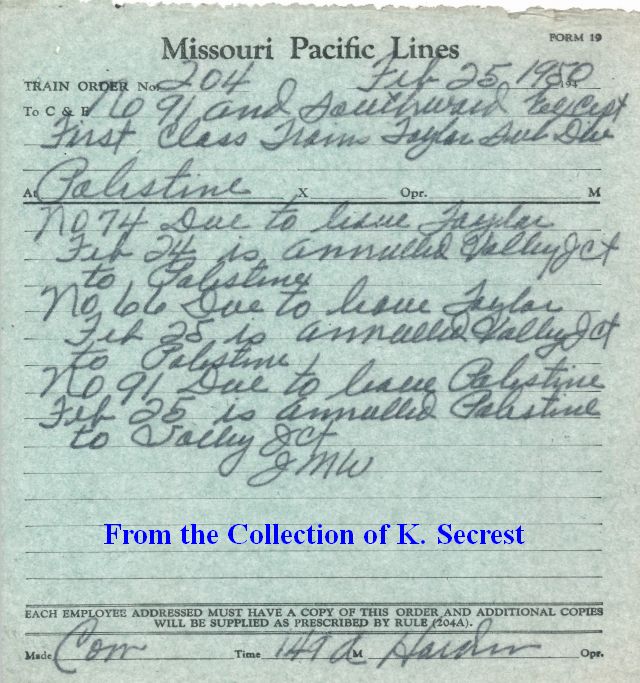 FORM 19
Missouri Pacific Lines
TRAIN ORDER No. 204 Feb 25, 1950
To C & E No 91 and Southward Except
First Class Trains Taylor Sub Div
At Palestine X Opr. M
No 74 Due to leave Taylor
Feb 24 is annulled Valley Jct
to Palestine
No 66 Due to leave Taylor
Feb 25 is annulled Valley Jct
to Palestine
No 91 Due to leave Palestine
Feb 25 is annulled Palestine
to Valley Jct
JMW
From the Collection of K. Secrest
EACH EMPLOYEE ADDRESSED MUST HAVE A COPY OF THIS ORDER AND ADDITIONAL COPIES
WILL BE SUPPLIED AS PRESCRIBED BY RULE (204A).
Made Com Time 149 A M Hardin Opr.